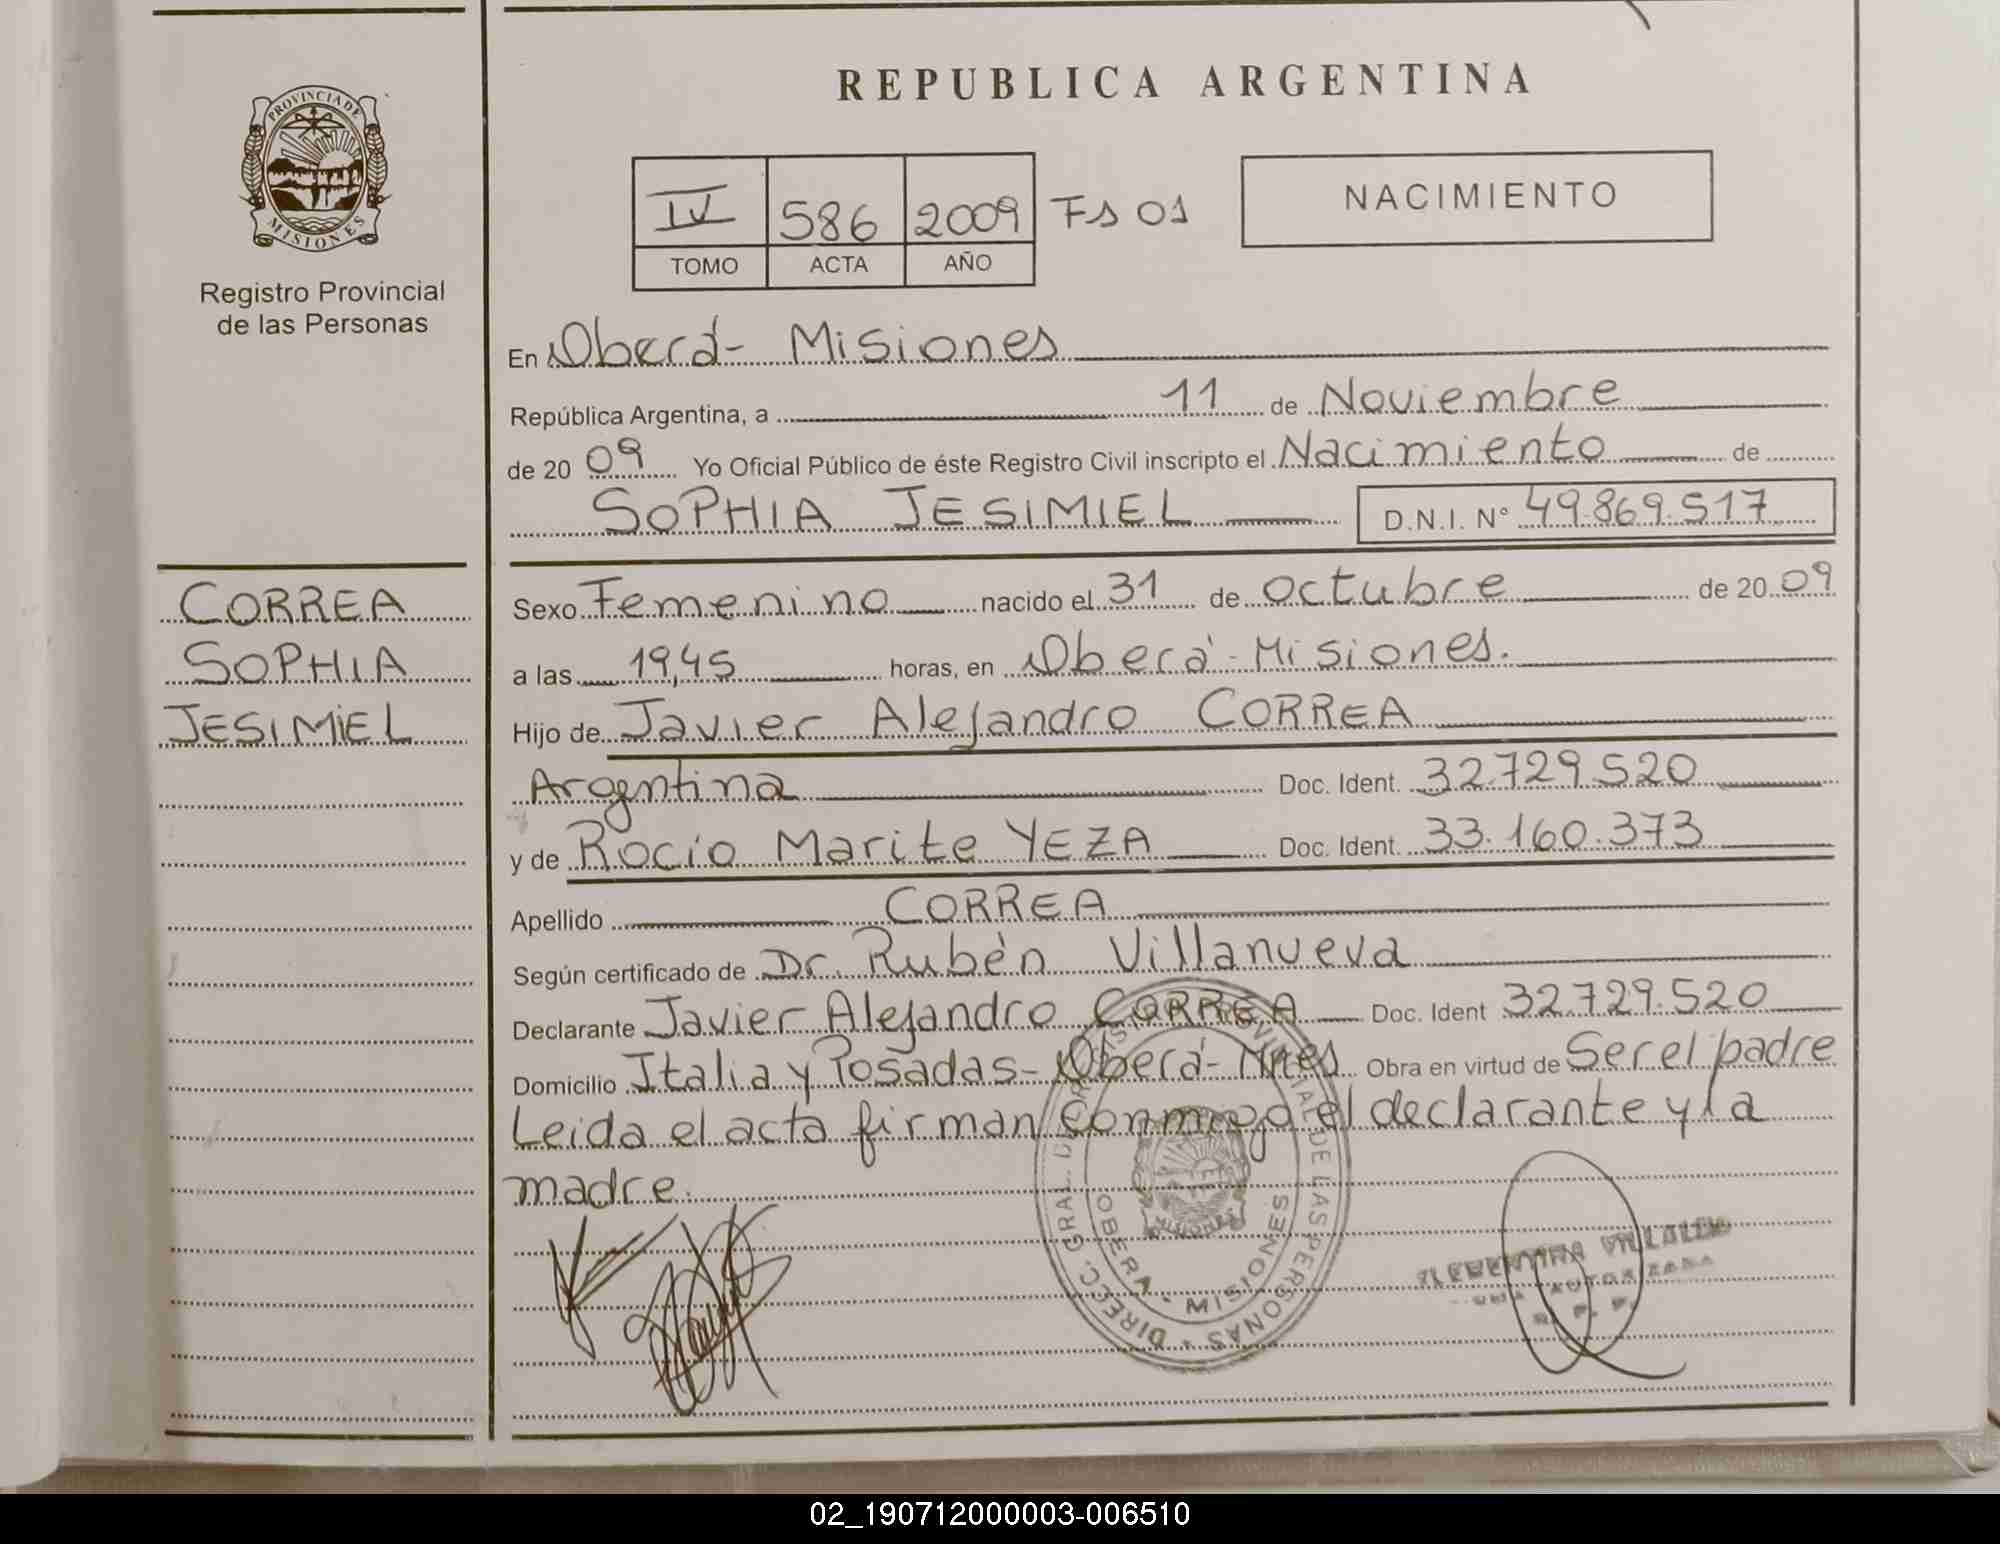 REPUBLICA ARGENTINA
PROVINCIA DE
MISIONES
Registro Provincial
de las Personas
IV 586 2009 Fs 01
TOMO ACTA AÑO
NACIMIENTO
En Oberá - Misiones
República Argentina, a 11 de Noviembre
de 20 09 Yo Oficial Público de éste Registro Civil inscripto el Nacimiento de
SOPHIA JESIMIEL D.N.I. N° 49.869.517
CORREA
SOPHIA
JESIMIEL
Sexo Femenino nacido el 31 de octubre de 20 09
a las 19,45 horas, en Oberá - Misiones.
Hijo de Javier Alejandro CORREA
Argentina Doc. Ident. 32.729.520
y de Rocío Marite YEZA Doc. Ident. 33.160.373
Apellido CORREA
Según certificado de Dr. Rubén Villanueva
Declarante Javier Alejandro CORREA Doc. Ident 32.729.520
Domicilio Italia y Posadas - Oberá - Mnes Obra en virtud de Ser el padre
Leida el acta firman conmigo el declarante y la
madre.
DIREC. GRAL. DE LAS PERSONAS
OBERA - MISIONES
02_190712000003-006510